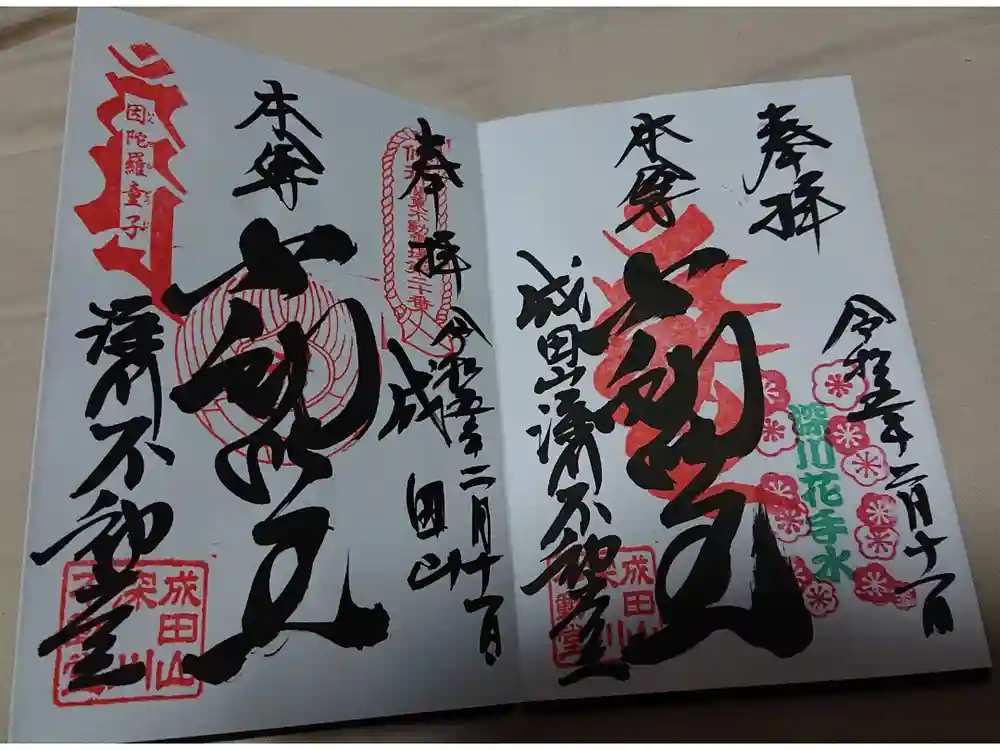 奉拝
令和五年二月十一日
深川花手水
本尊
不動明王
成田山深川不動堂
成田山
深川
不動堂
奉拝
令和五年二月十一日
成田山
本尊
不動明王
深川不動堂
因陀羅童子
成田山
深川
不動堂